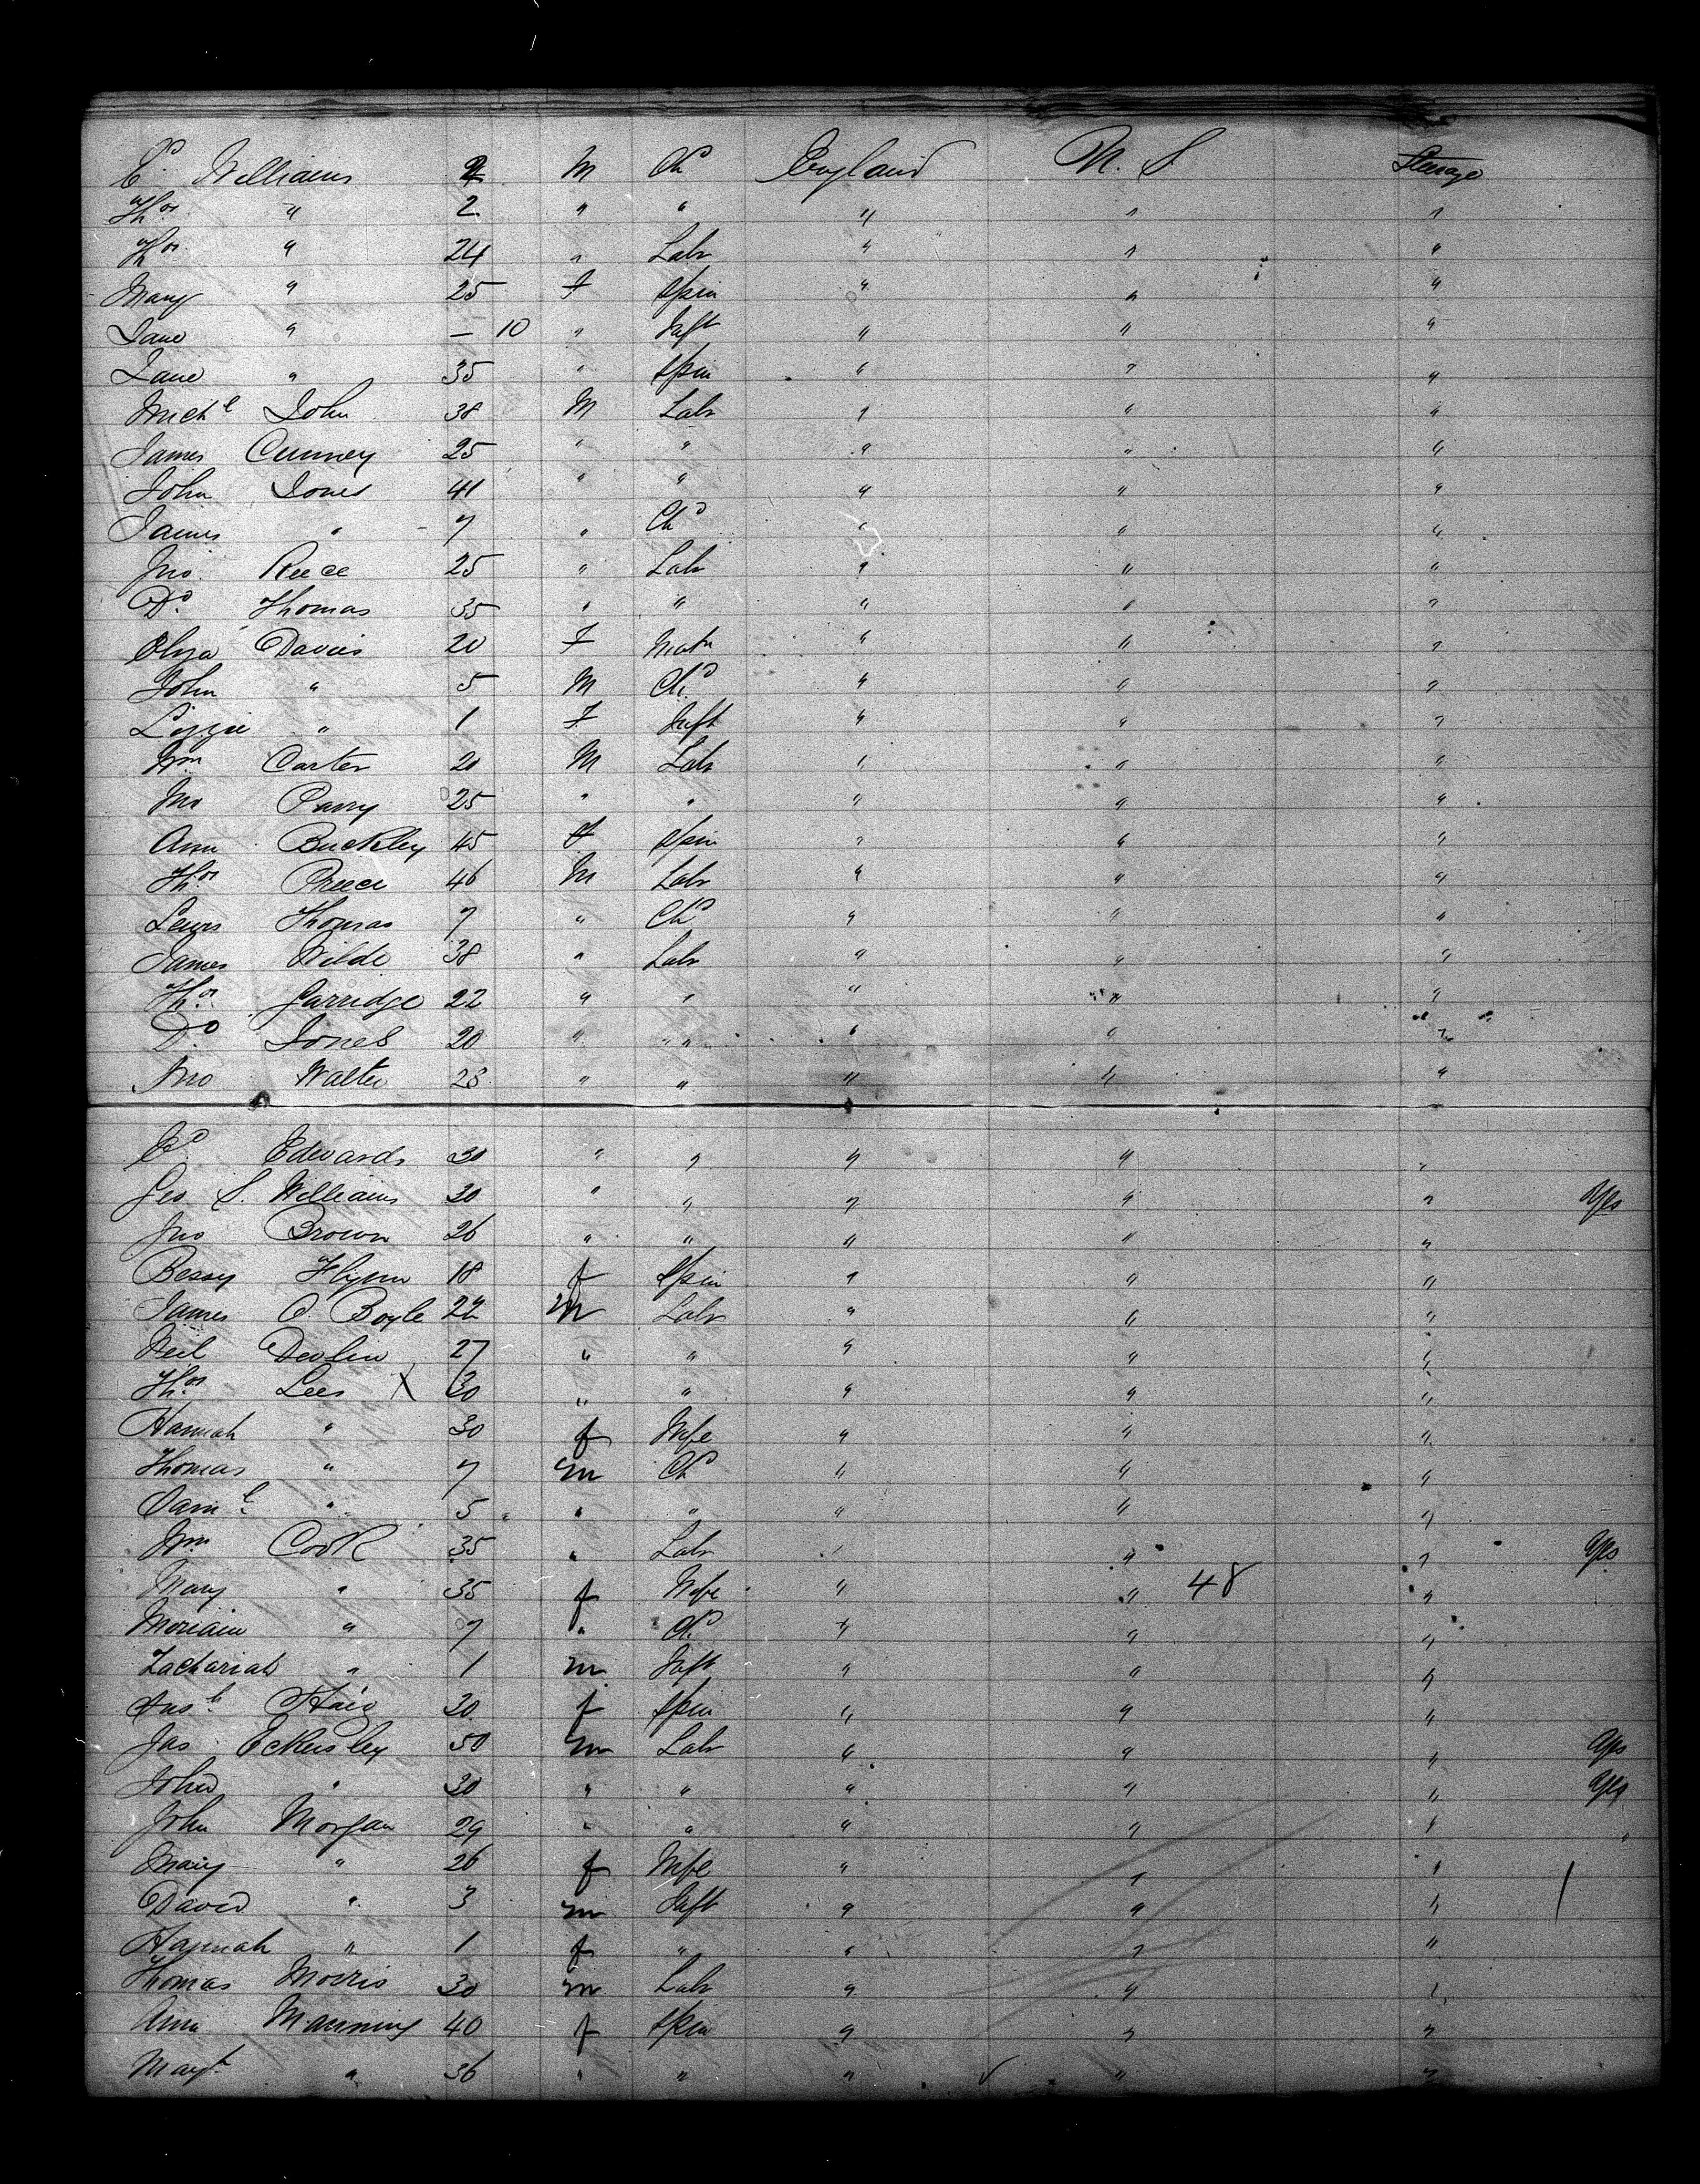 Ed. Williams 4 M Chd England U. S Steerage
Thos " 2 " " " " "
Thos " 24 " Labr " " "
Mary " 25 F Spin " " "
Jane " — 10 " Inft " " "
Jane " 35 " Spin " " "
Michl John 38 M Labr " " "
James Cumney 25 " " " " "
John Jones 41 " " " " "
James " 7 " Chd " " "
Jno. Reece 25 " Labr " " "
Dd. Thomas 35 " " " " "
Eliza Davies 20 F Matn " " "
John " 5 M Chd " " "
Lizzie " 1 F Inft " " "
Wm Carter 20 M Labr " " "
Jno Parry 25 " " " " "
Ann Buckley 45 F Spin " " "
Thos Preece 46 M Labr " " "
Lewis Thomas 7 " Chd " " "
James Wilde 38 " Labr " " "
Thos. Garridge 22 " " " " "
Dd. Jones 20 " " " " "
Jno Walter 23 " " " " "
Ed. Edwards 30 " " " " "
Geo S. Williams 30 " " " " " Yes
Jno Brown 26 " " " " "
Bessy Flynn 18 f Spin " " "
James O. Boyle 22 m Labr " " "
Neil Devlin 27 " " " " "
Thos. Lees X 30 " " " " "
Hannah " 30 f Wife " " "
Thomas " 7 m Chd " " "
Saml. " 5 " " " " "
Wm Cook 35 " Labr " " " Yes
Mary " 35 f Wife " " 48 "
Moriain " 7 " Chd " " "
Zachariah " 1 m Inft " " "
Haig 30 f Spin " " "
Jas Eckersley 50 m Labr " " " Yes
John " 30 " " " " " Yes
John Morgan 29 " " " " " "
Mary " 26 f Wife " " "
David " 3 m Inft " " "
Hannah " 1 f " " " "
Thomas Morris 30 m Labr " " "
Ann Manning 40 f Spin " " "
Magt " 36 " " " " "